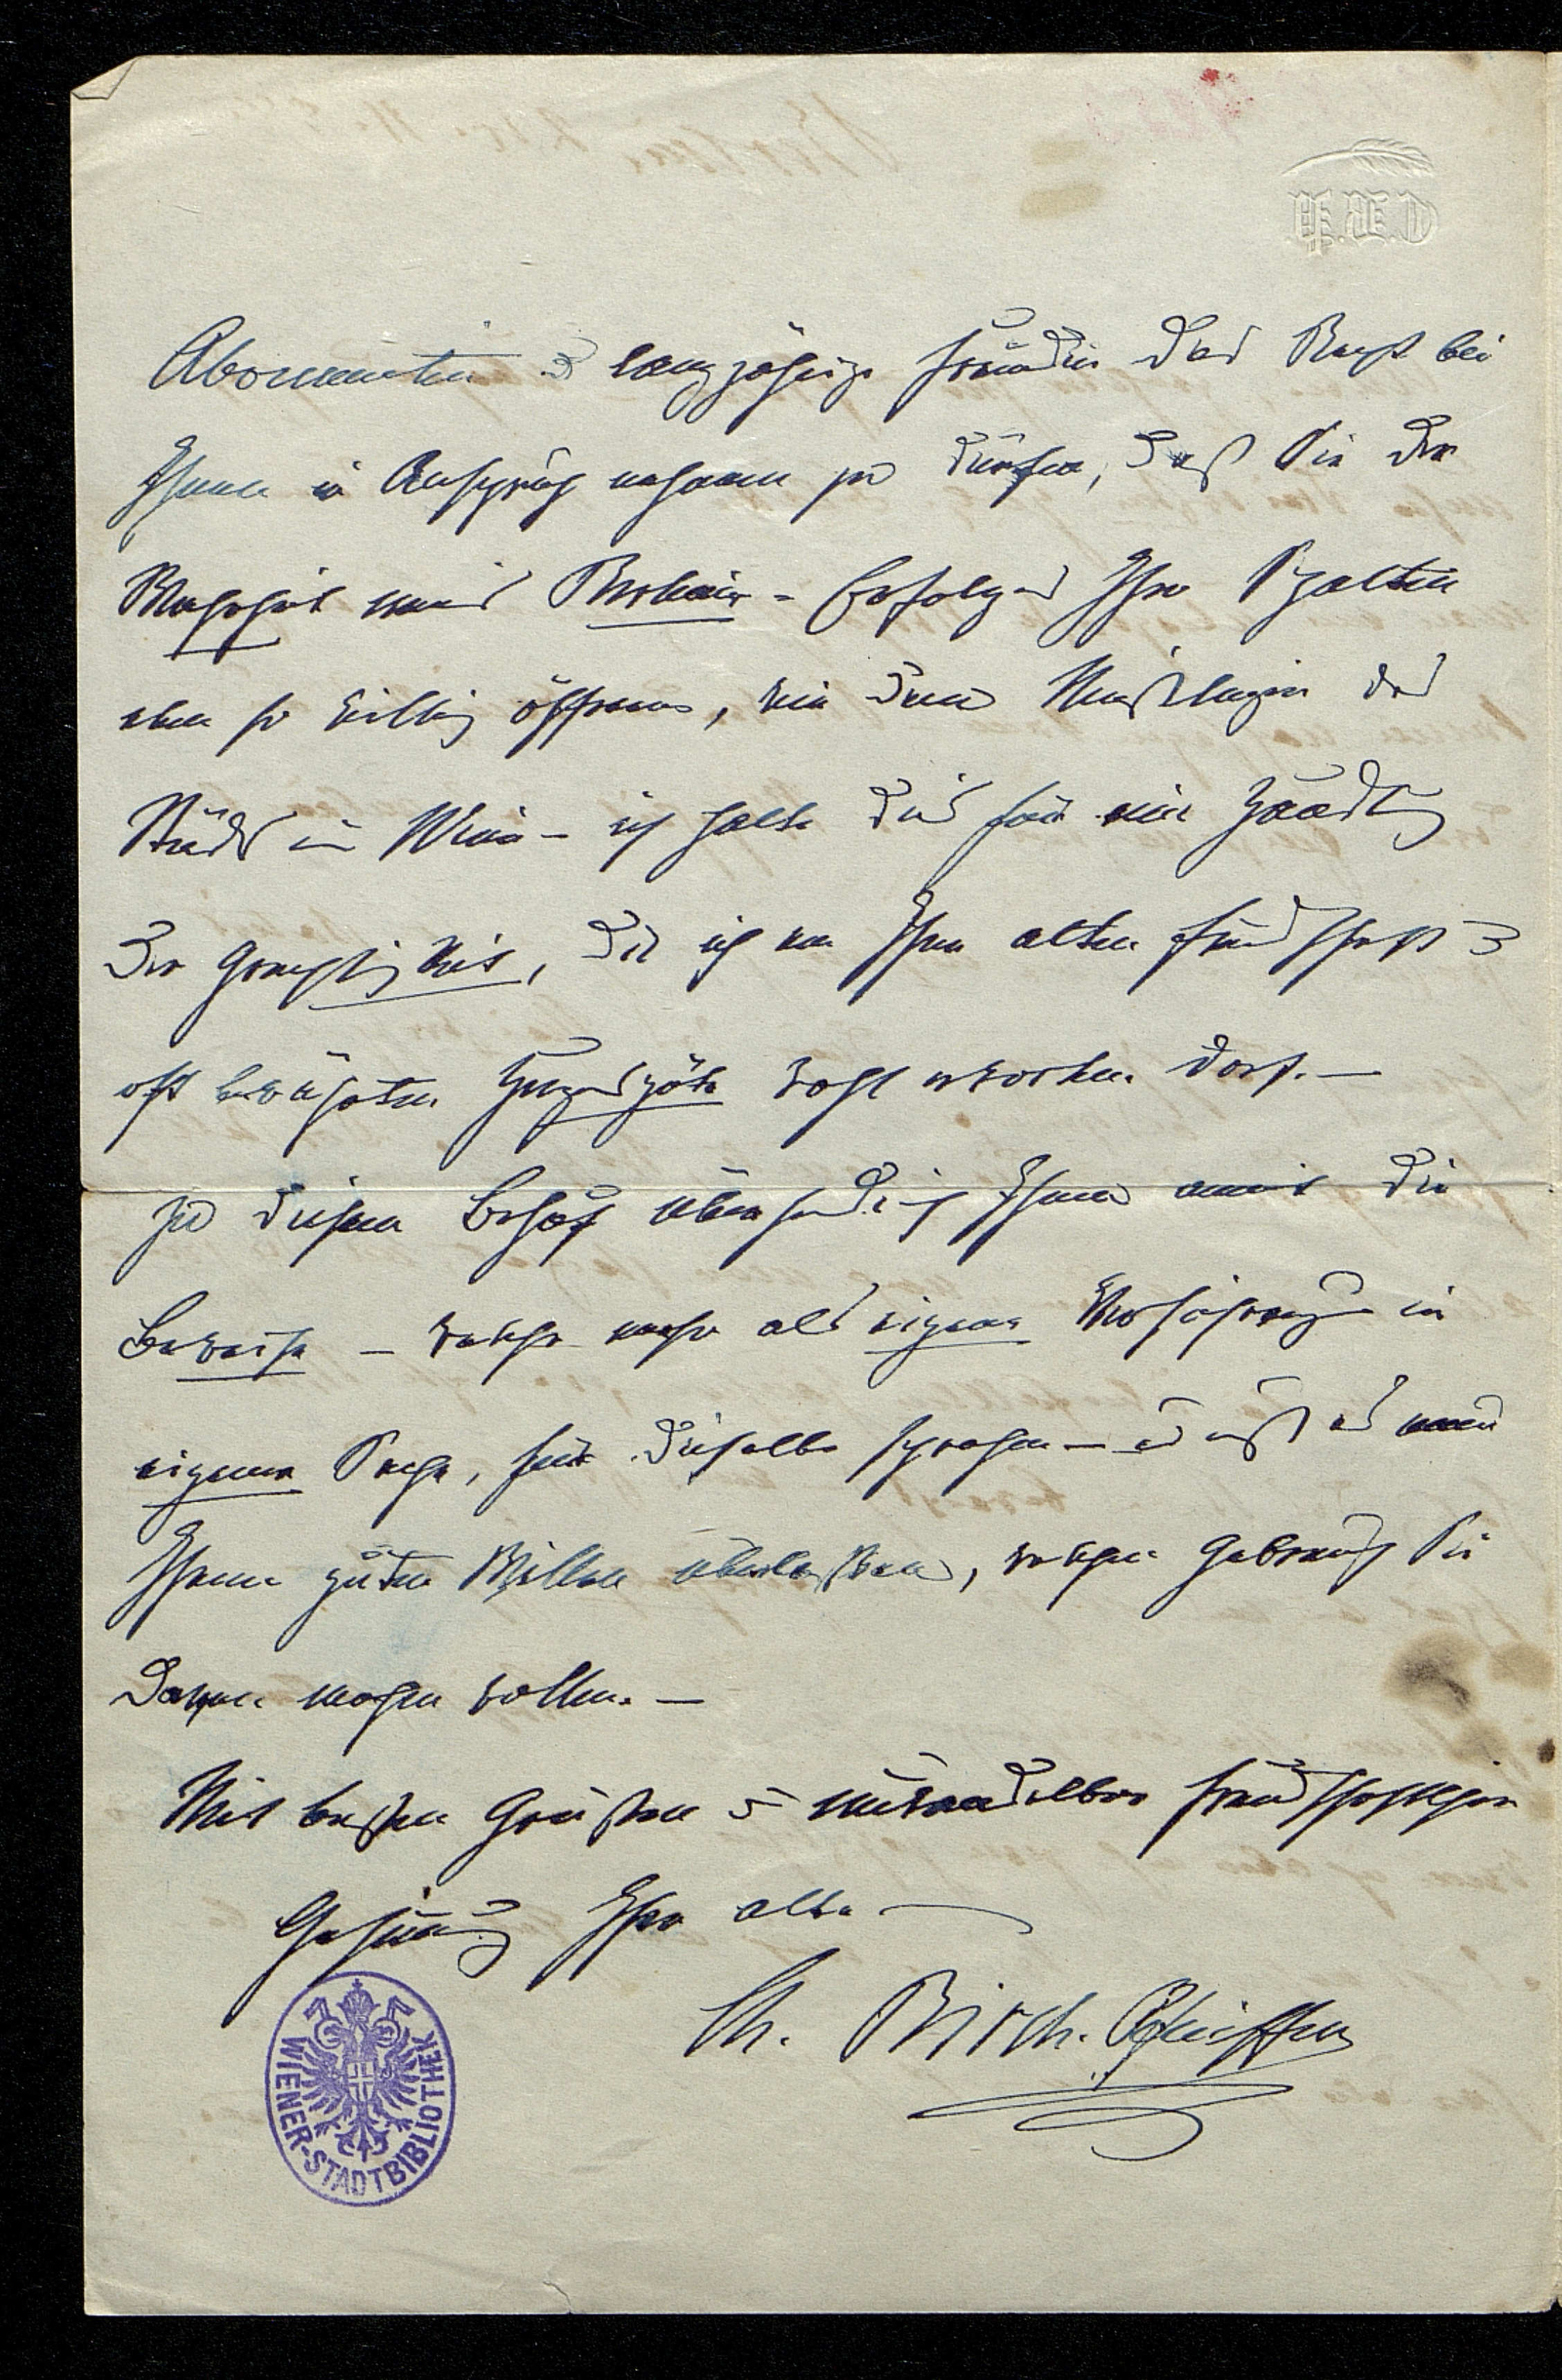 Abonnentin & langjährige Freundin das Recht bei
Ihnen in Anspruch nehmen zu dürfen, daß Sie der
Wahrheit meines Berliner-Erfolges Ihre Spalten
eben so willig öffnen, wie dem Nachklagen des
Stücks in Wien – ich halte dies für eine Handlung
der Gerechtigkeit, die ich von Ihrer alten Freundschaft &
oft bewährten Herzensgüte wohl erwarten darf. –
Zu diesem Behuf übersende ich Ihnen anmit die
Beweise – welche mehr als eigene Versicherung in
eigener Sache, für dieselbe sprechen – es muß es nun
Ihrem guten Willen überlassen, welchen Gebrauch Sie
davon machen wollen. –
Mit besten Grüßen & unwandelbar freundschaftlicher
Gesinnung Ihre alte –
Ch. Birch-Pfeiffer
WIENER-STADTBIBLIOTHEK